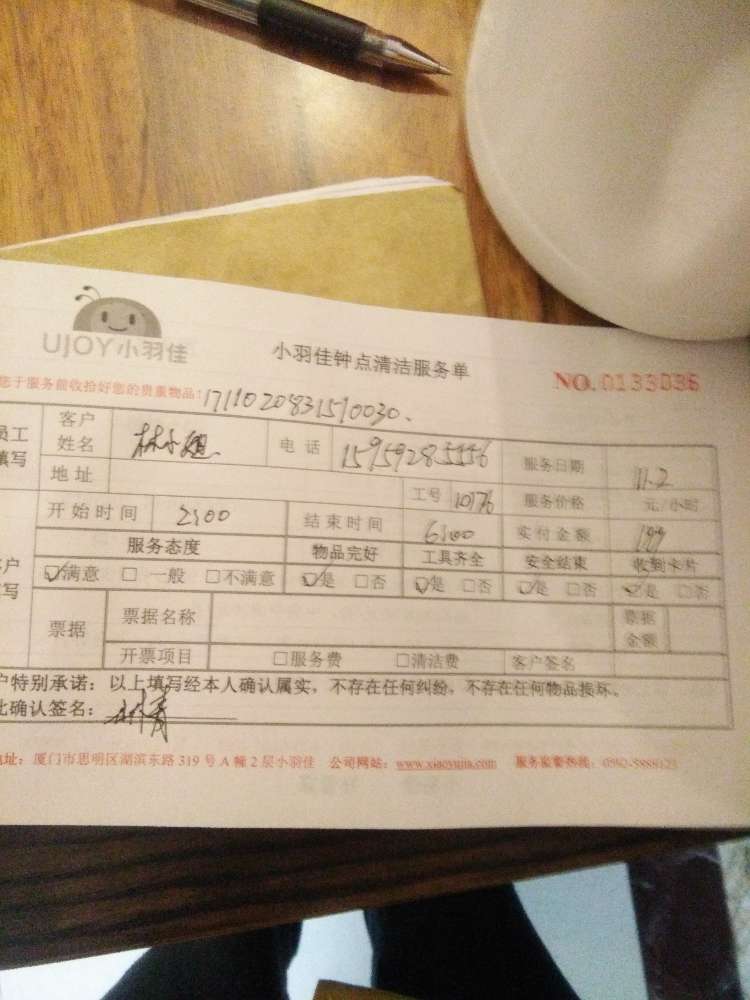 UJOY小羽佳
小羽佳钟点清洁服务单
NO. 0133036
您于服务前收拾好您的贵重物品!
1711020831510030.
员工填写
客户姓名 林小姐 电话 15959285556 服务日期 11.2
地址 工号 10176 服务价格 元/小时
开始时间 2:00 结束时间 6:00 实付金额 199
服务态度 物品完好 工具齐全 安全结束 收到卡片
☑满意 □一般 □不满意 ☑是 □否 ☑是 □否 ☑是 □否 ☑是 □否
票据 票据名称 票据金额
开票项目 □服务费 □清洁费 客户签名
户特别承诺：以上填写经本人确认属实，不存在任何纠纷，不存在任何物品损坏。
此确认签名：
地址：厦门市思明区湖滨东路319号A幢2层小羽佳 公司网站：www.xiaoyujia.com 服务监督热线：0592-5888123